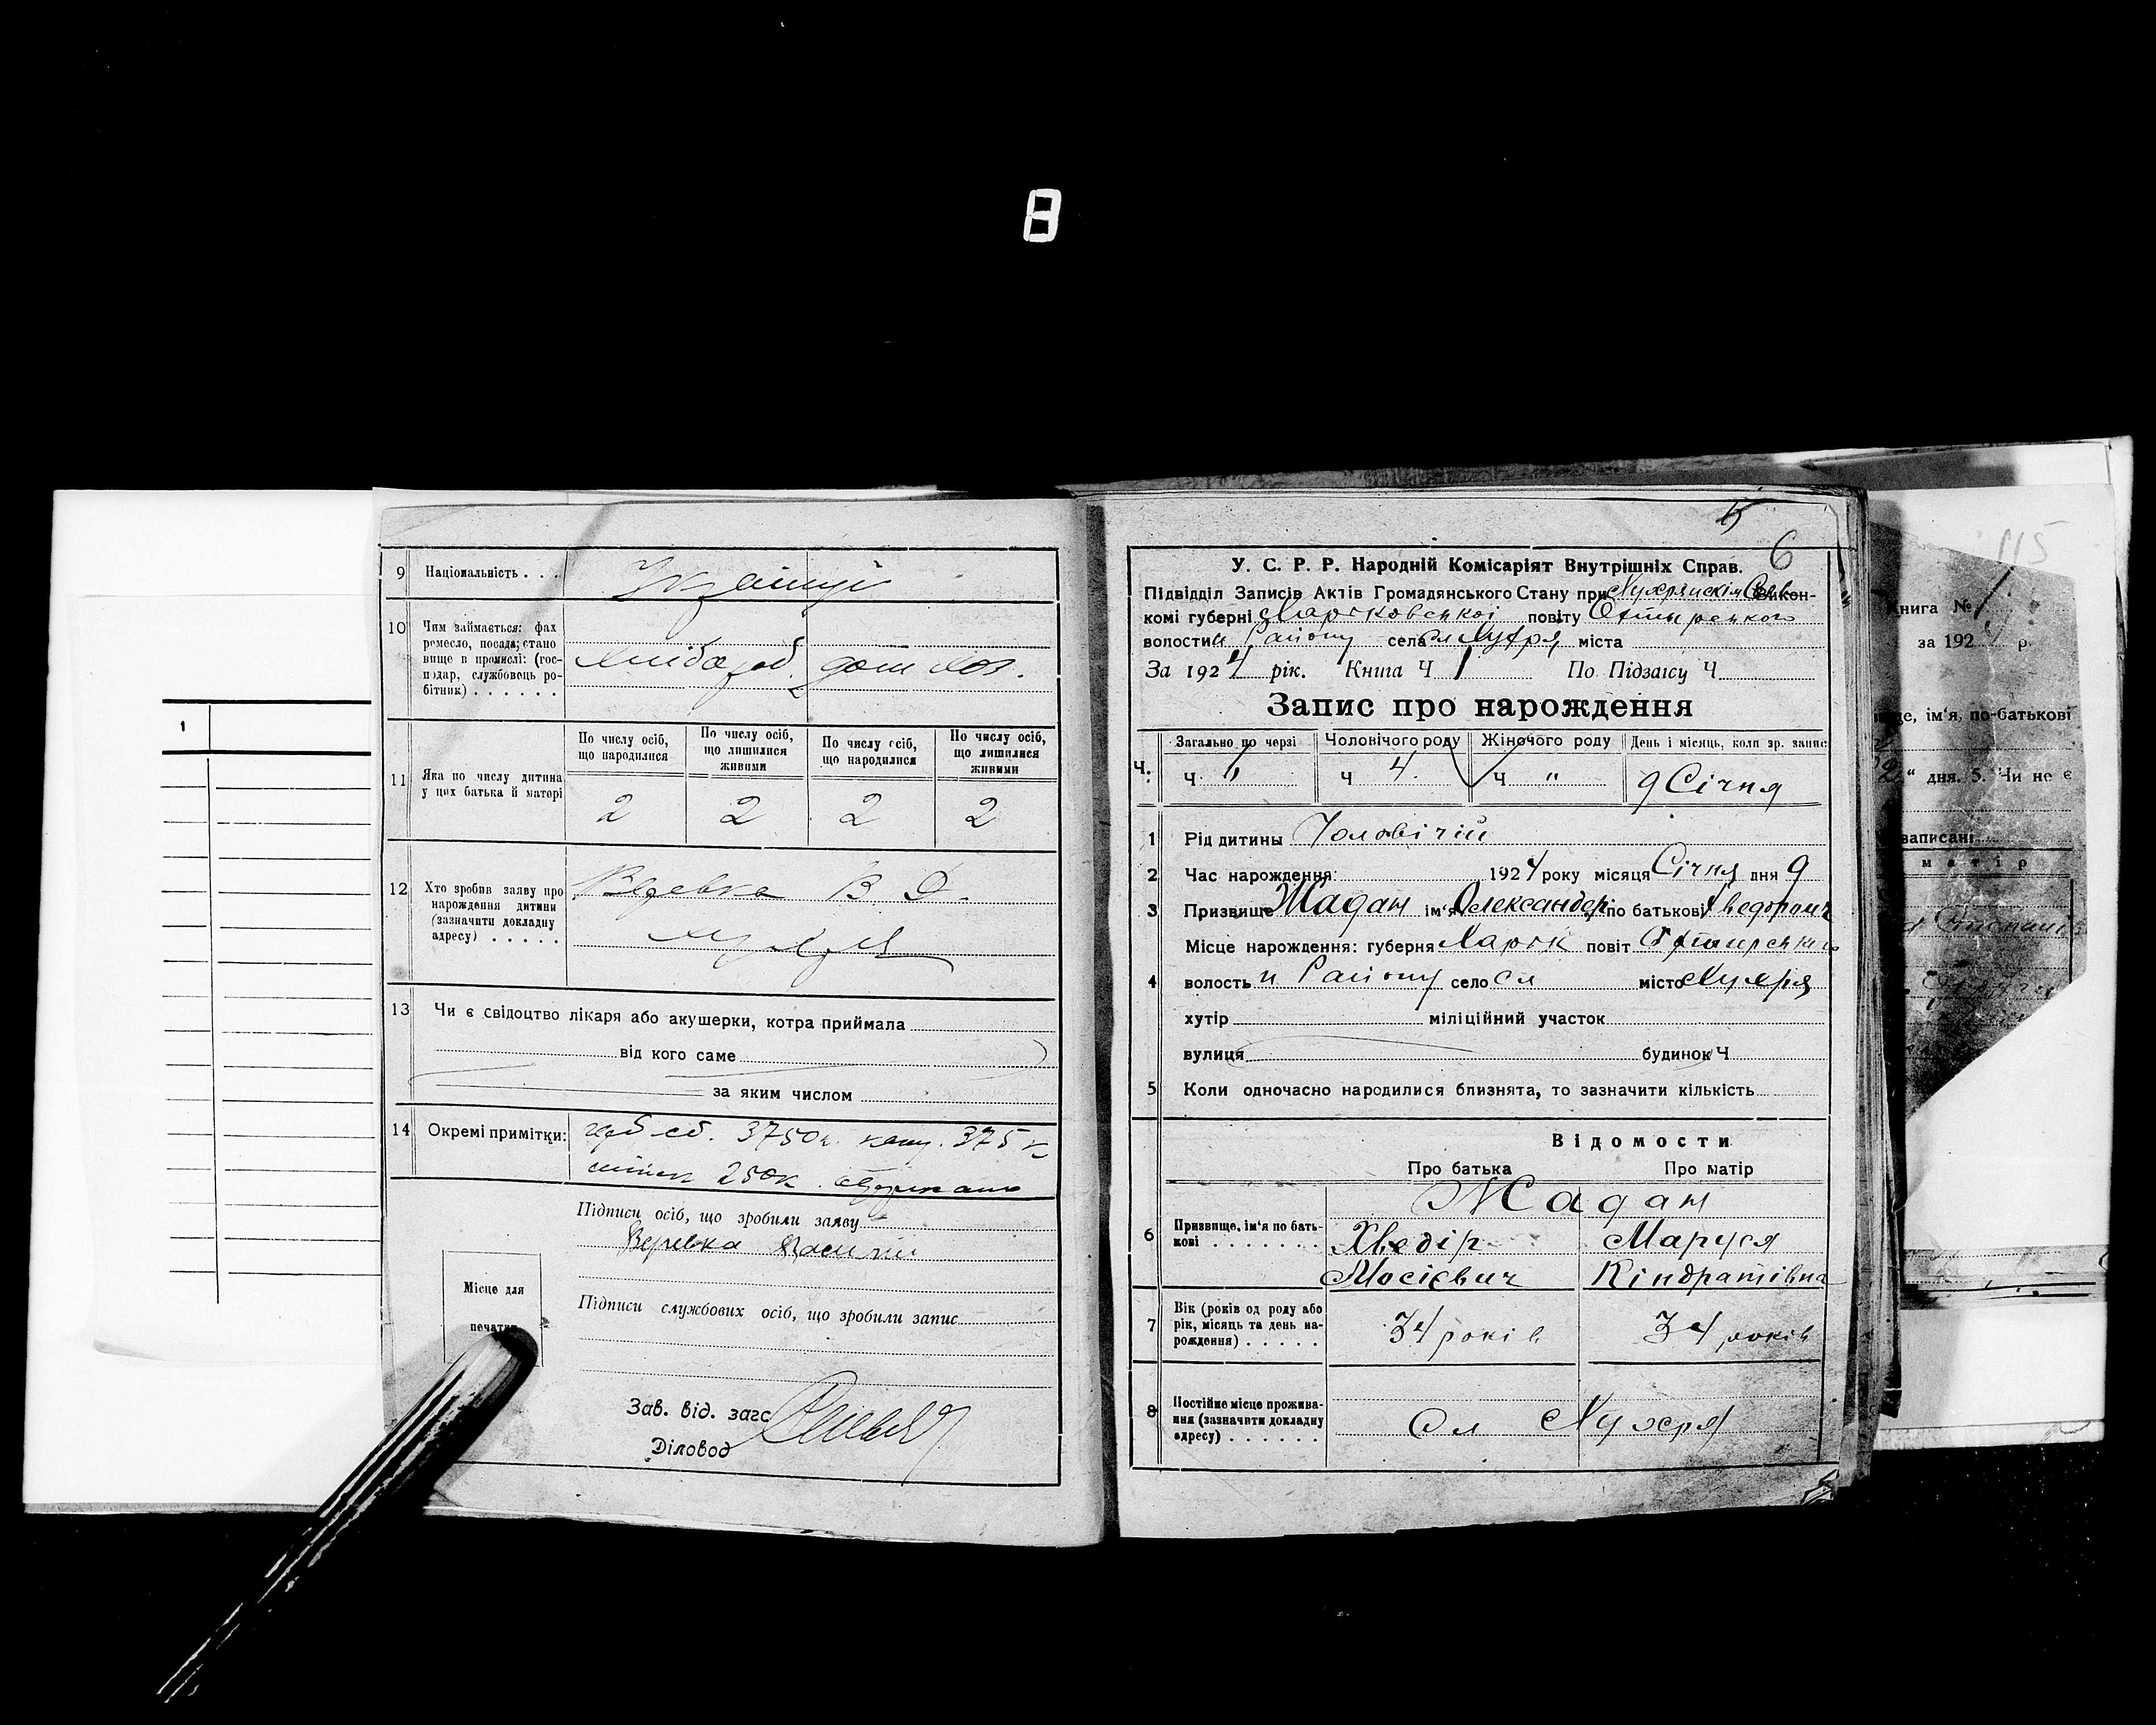 8
1
9 Національність . . . Українці
10 Чим займається: фах
ремесло, посада; стано
вище в промислі: (гос-
подар, службовець ро-
бітник) . . . . . .
хлібороб. дом хоз.
11 Яка по числу дитина
у цих батька й матері
По числу осіб,
що народилися
По числу осіб,
що лишилися
живими
По числу осіб,
що народилися
По числу осіб,
що лишилися
живими
2 2 2 2
12 Хто зробив заяву про
нарождення дитини
(зазначити докладну
адресу) . . . . .
Веревка В.
13 Чи є свідоцтво лікаря або акушерки, котра приймала
від кого саме
за яким числом
14 Окремі примітки:
3750 375 к
250к.
Підписи осіб, що зробили заяву
Веревка
Місце для
печатки
Підписи службових осіб, що зробили запис
Зав. від. загс
Діловод
5
6
У. С. Р. Р. Народній Комісаріят Внутрішніх Справ.
Підвідділ Записів Актів Громадянського Стану при Викон-
комі губерні Харьковської повіту
волости и Району села сл Хухря міста
За 1924 рік. Книга Ч 1 По Підзагсу Ч
Запис про нарождення
Загально по черзі Чоловічого роду Жіночого роду День і місяць, коли зр. запис
Ч: Ч Ч 4. Ч " 9 Січня
1 Рід дитины Чоловічій
2 Час нарождення: 1924 року місяця Січня дня 9
3 Призвище Жадан ім'я Олександер по батькові Хведорович
Місце нарождення: губерня Харьк повіт
4 волость и Району село сл місто Хухря
хутір міліційний участок
вулиця будинок Ч
5 Коли одночасно народилися близнята, то зазначити кількість
Відомости
Про батька Про матір
Жадан
6 Призвище, ім'я по бать-
кові . . . . . . .
Хведір Маруся
Мосієвич Кіндратівна
7 Вік (років од роду або
рік, місяць та день на-
рождення) . . . . .
34 років 34 років
8 Постійне місце прожива-
ння (зазначити докладну
адресу) . . . . . .
Сл Хухря
115
Книга № 1
за 192 р.
ім'я, по-батькові
" дня. 5. Чи не є
записані
матір